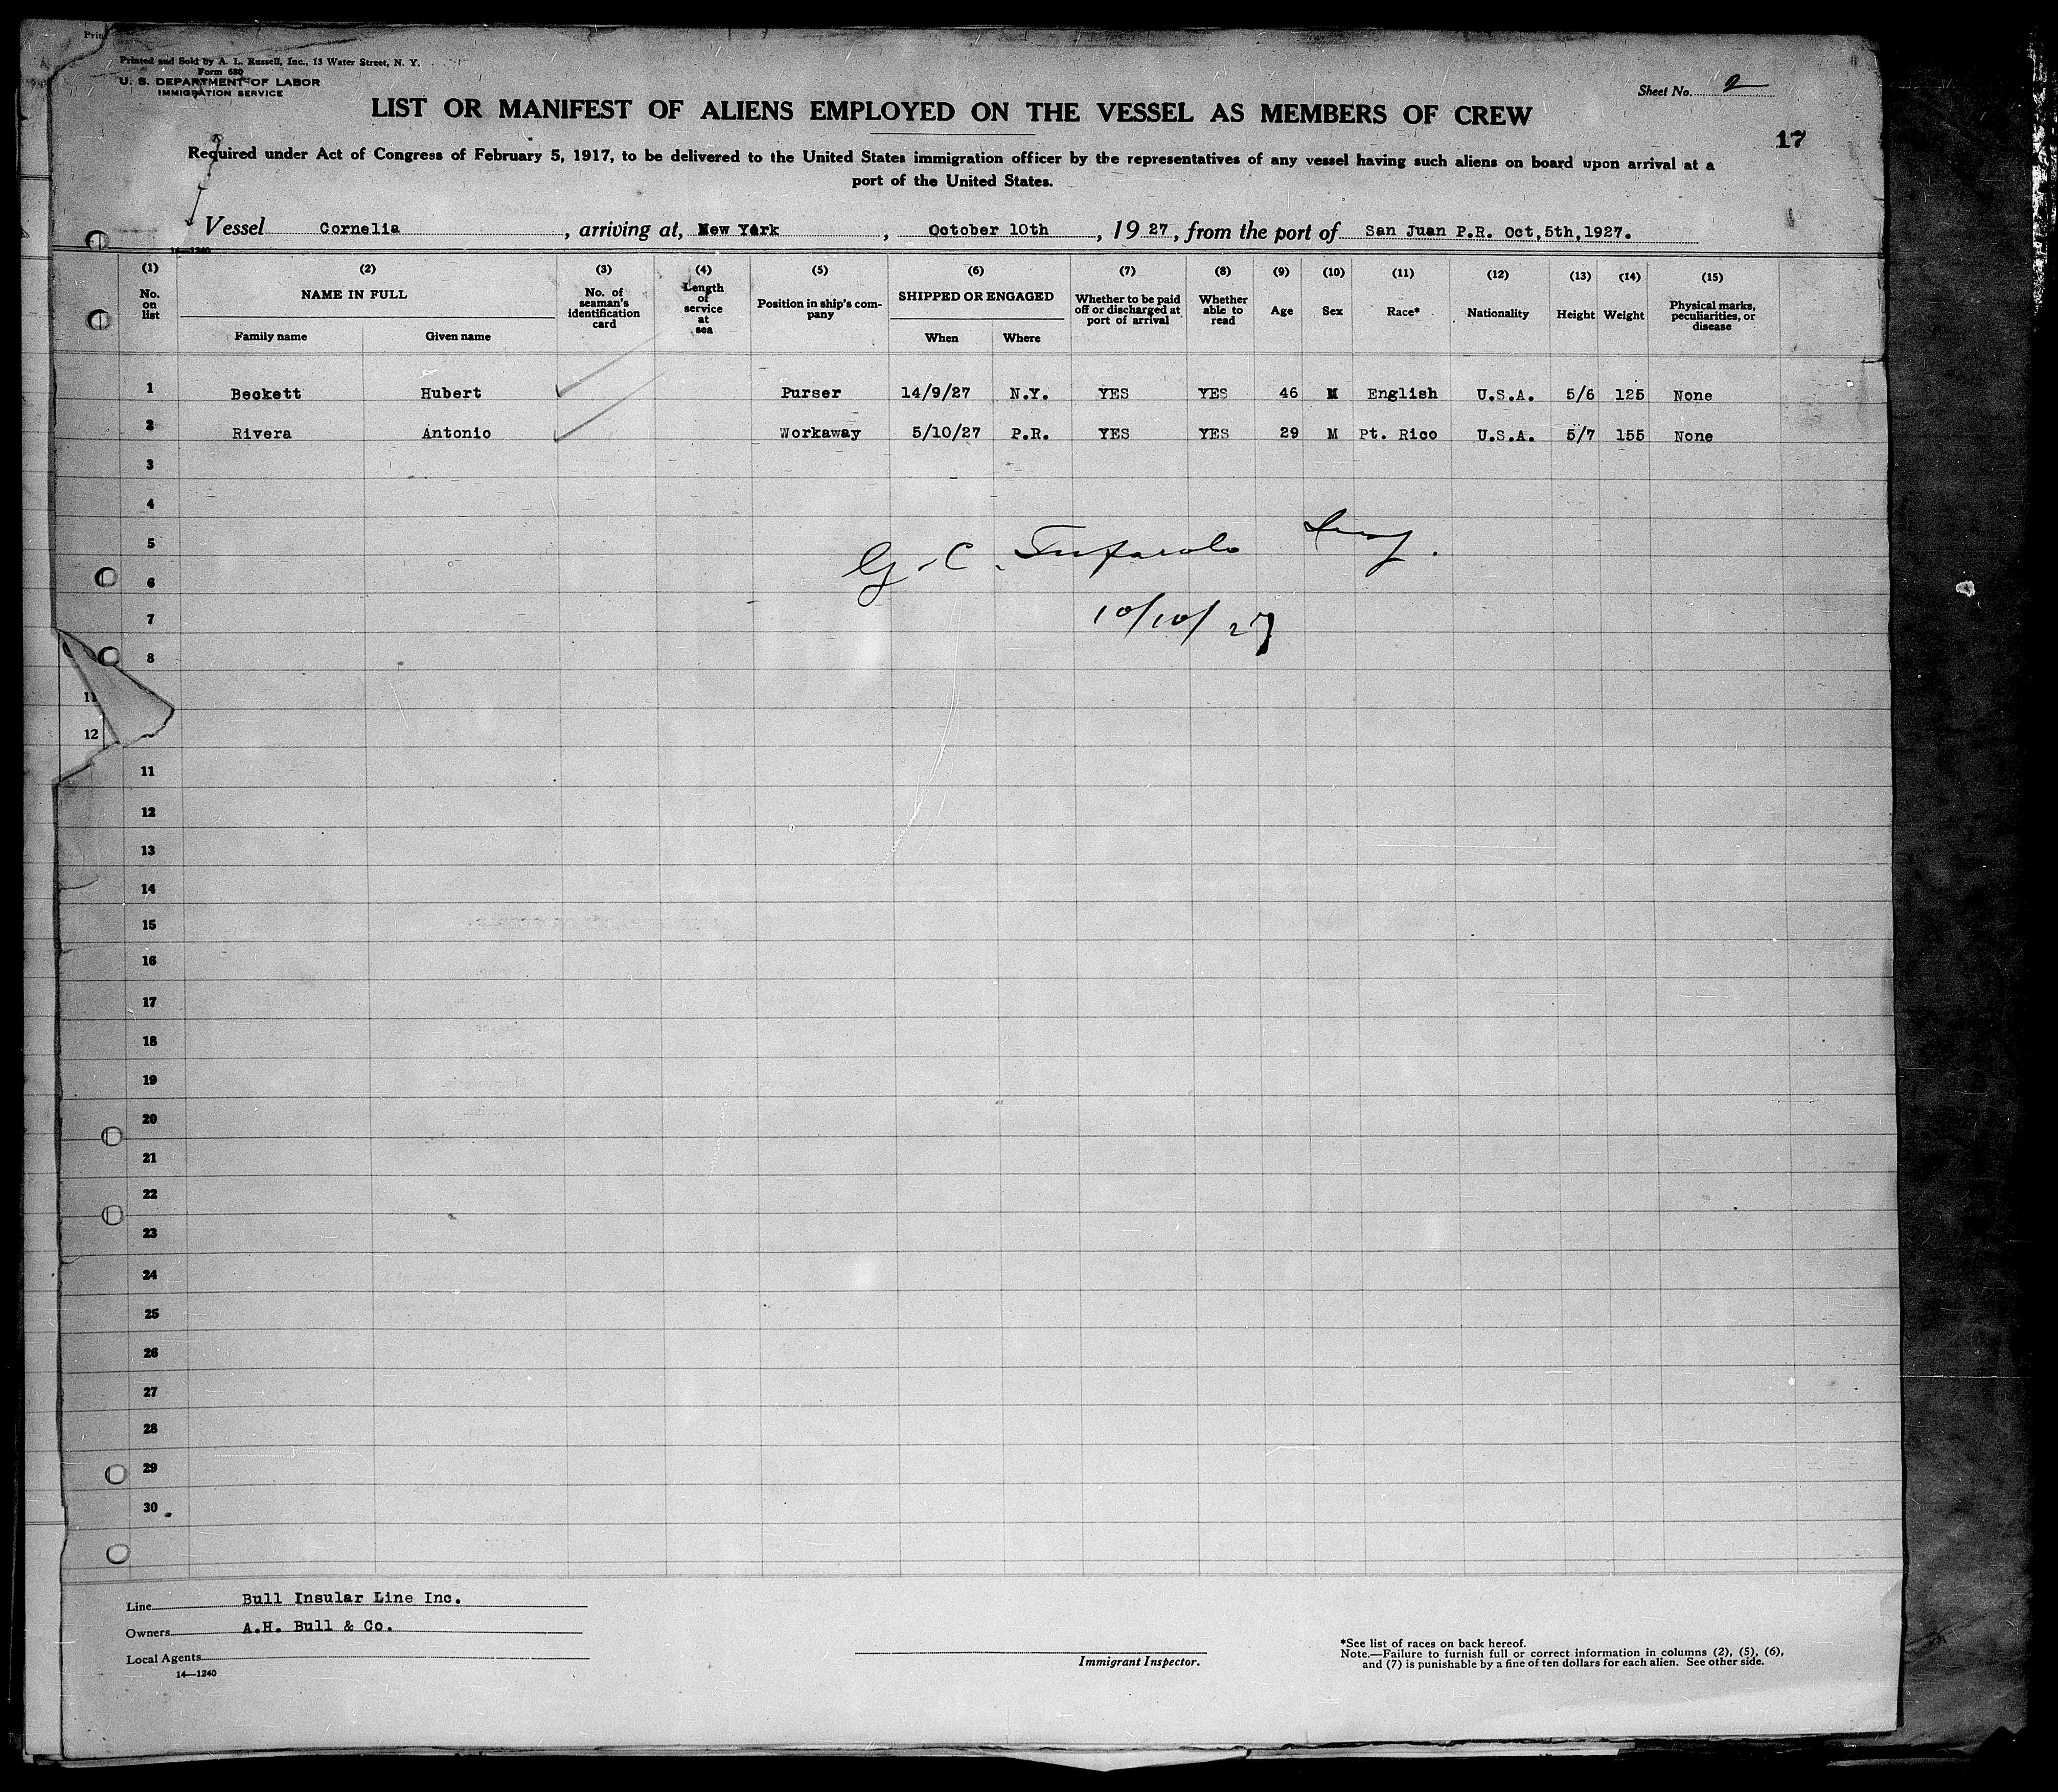 Prin
Printed and Sold by A. L. Russell, Inc., 13 Water Street, N. Y.
Form 680
U. S. DEPARTMENT OF LABOR
IMMIGRATION SERVICE
Sheet No. 2
LIST OR MANIFEST OF ALIENS EMPLOYED ON THE VESSEL AS MEMBERS OF CREW
17
Required under Act of Congress of February 5, 1917, to be delivered to the United States immigration officer by the representatives of any vessel having such aliens on board upon arrival at a
port of the United States.
Vessel Cornelia, arriving at, New York, October 10th, 1927, from the port of San Juan P.R. Oct,5th,1927.
14—1240
(1) (2) (3) (4) (5) (6) (7) (8) (9) (10) (11) (12) (13) (14) (15)
No. on list NAME IN FULL Family name Given name No. of seaman's identification card Length of service at sea Position in ship's company SHIPPED OR ENGAGED When Where Whether to be paid off or discharged at port of arrival Whether able to read Age Sex Race* Nationality Height Weight Physical marks, peculiarities, or disease
1 Beckett Hubert Purser 14/9/27 N.Y. YES YES 46 M English U.S.A. 5/6 125 None
2 Rivera Antonio Workaway 5/10/27 P.R. YES YES 29 M Pt. Rico U.S.A. 5/7 155 None
3
4
5
G. C.
6
7 10/10/27
8
11
12
11
12
13
14
15
16
17
18
19
20
21
22
23
24
25
26
27
28
29
30
Line Bull Insular Line Inc.
Owners A.H. Bull & Co.
Local Agents
14—1240
Immigrant Inspector.
*See list of races on back hereof.
Note.—Failure to furnish full or correct information in columns (2), (5), (6),
and (7) is punishable by a fine of ten dollars for each alien. See other side.